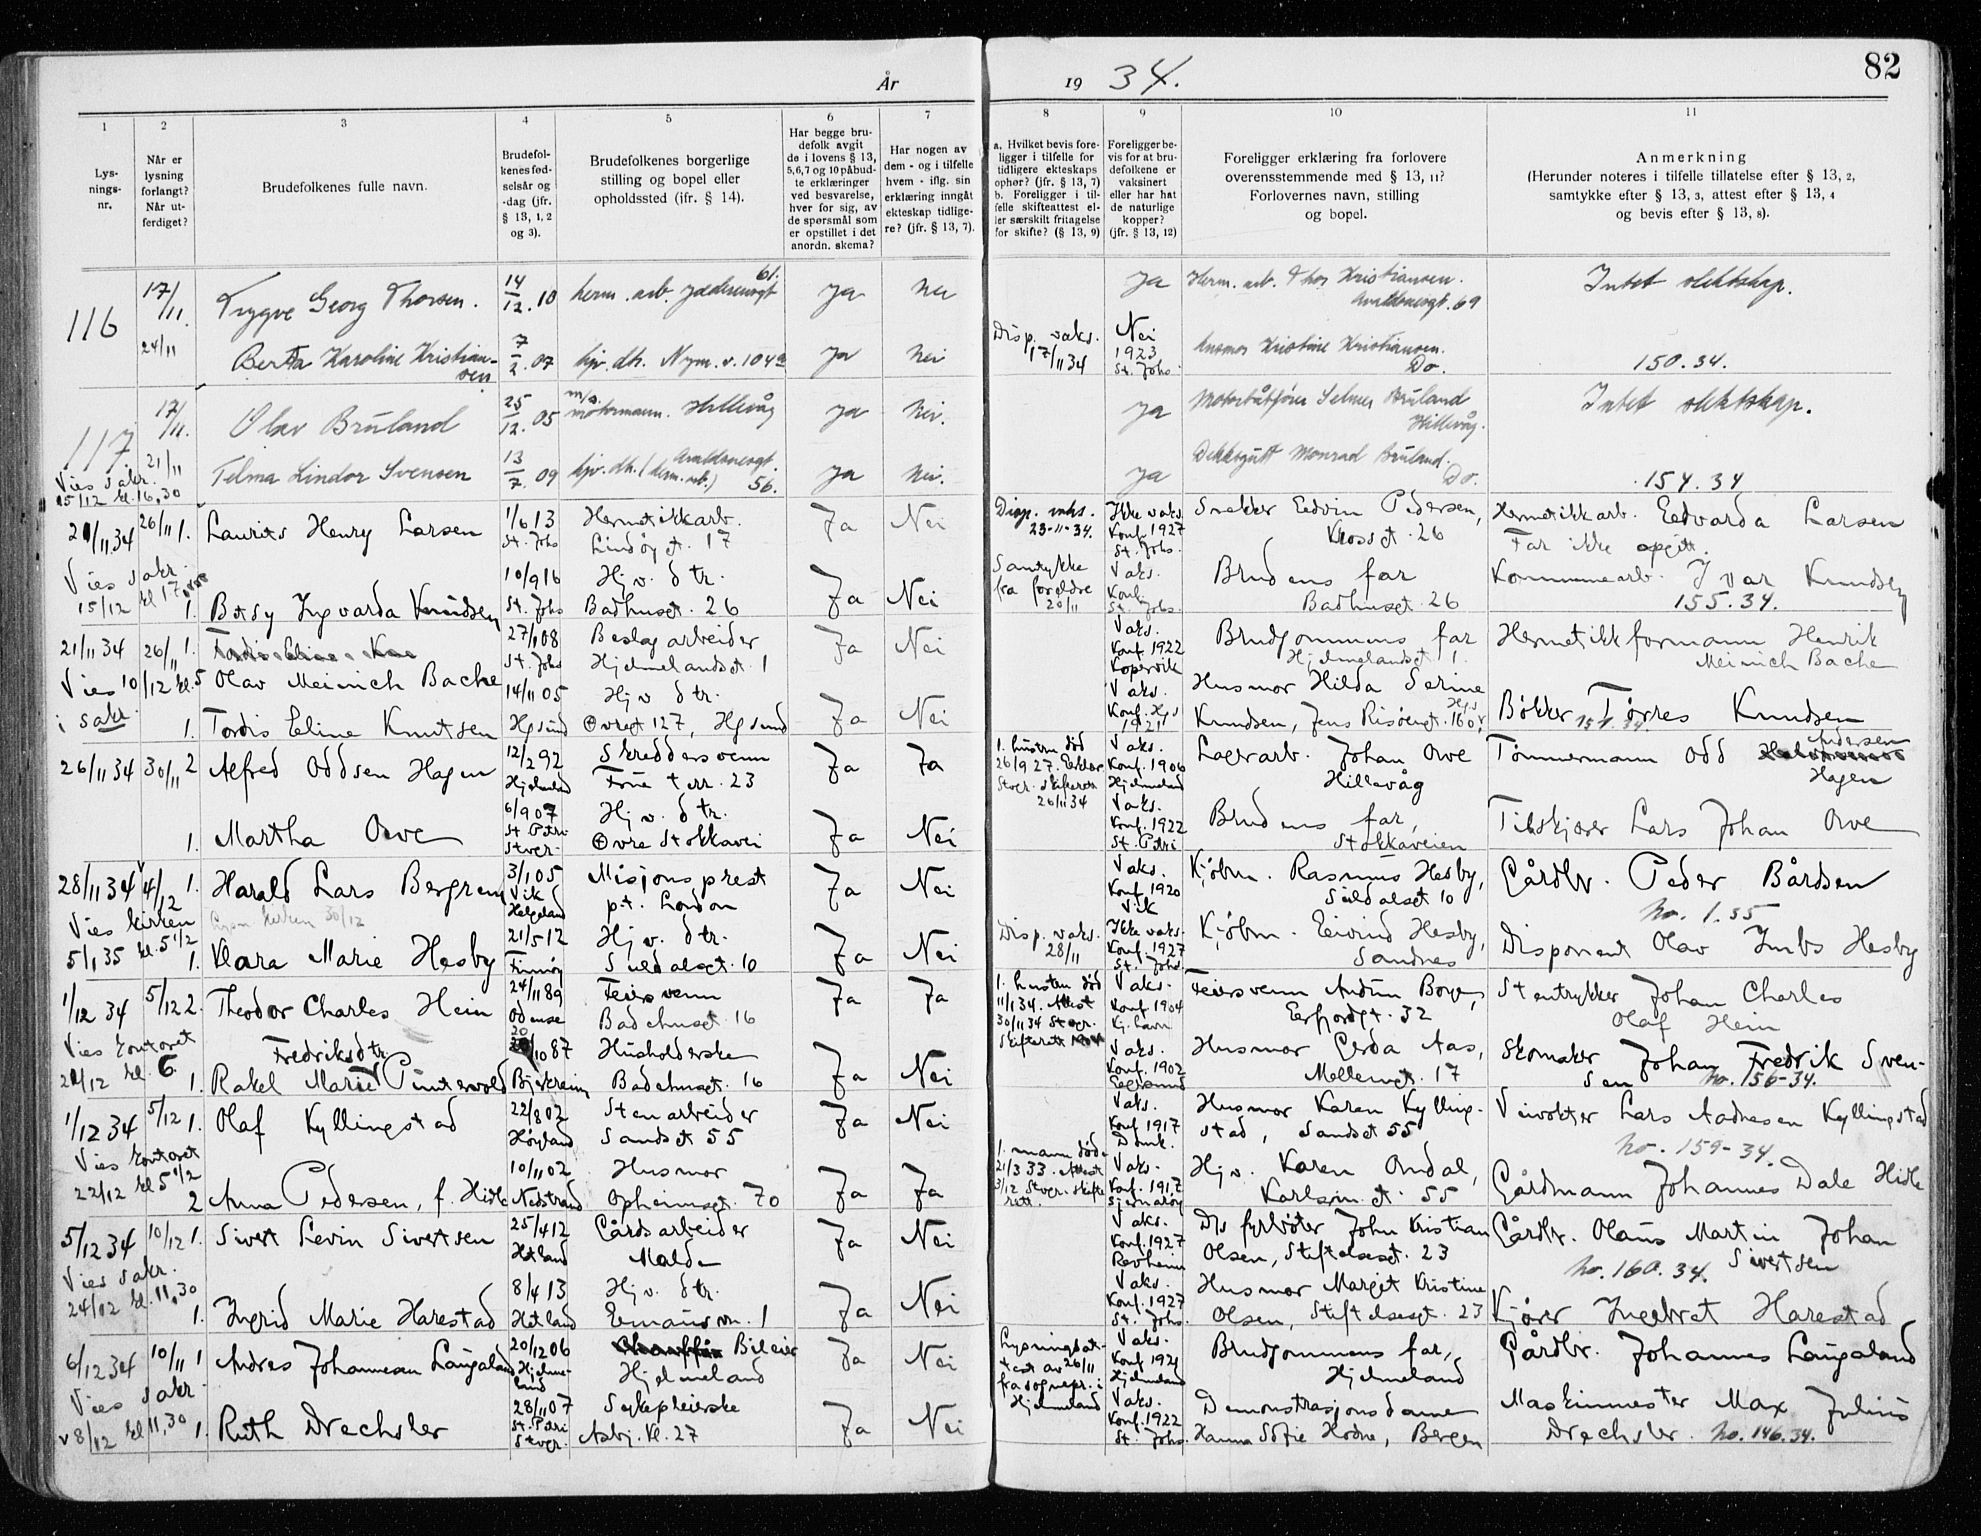 År 19 34. 82
1 2 3 4 5 6 7 8 9 10 11
Lysnings-nr.
Når er lysning forlangt? Når utferdiget?
Brudefolkenes fulle navn.
Brudefolkenes fødselsår og -dag (jfr. § 13, 1, 2 og 3).
Brudefolkenes borgerlige stilling og bopel eller opholdssted (jfr. § 14).
Har begge brudefolk avgit de i lovens § 13, 5,6,7 og 10 påbudte erklæringer ved besvarelse, hver for sig, av de spørsmål som er opstillet i det anordn. skema?
Har nogen av dem - og i tilfelle hvem - iflg. sin erklæring inngått ekteskap tidligere? (jfr. § 13, 7).
a. Hvilket bevis foreligger i tilfelle for tidligere ekteskaps ophør? (jfr. § 13, 7) b. Foreligger i tilfelle skifteattest eller særskilt fritagelse for skifte? (§ 13, 9)
Foreligger bevis for at brudefolkene er vaksinert eller har hat de naturlige kopper? (jfr. § 13, 12)
Foreligger erklæring fra forlovere overensstemmende med § 13, 11? Forlovernes navn, stilling og bopel.
Anmerkning (Herunder noteres i tilfelle tillatelse efter § 13, 2, samtykke efter § 13, 3, attest efter § 13, 4 og bevis efter § 13, 8).
116 17/11. Trygve Georg Thorsen. 14/12.10 herm. arb. 61. ja nei ja Herm. arb. Thor Kristiansen. 69 Intet slektskap.
24/11 Berta Karoline Kristiansen 7/2.07 hjv. dh. Nym. v. 104a ja nei Disp. vaks. 17/11 34 Nei 1923 St. Johs. Husmor Kristine Kristiansen. Do. 150.34.
117 17/11. Olav Bruland 25/12.05 motormann. Hillevåg ja nei. ja Motorbåtfører Selmer Bruland Hillevåg. Intet slektskap.
Vies sakr. 15/12 kl. 16,30 21/11 Telma Lindor Svensen 13/7.09 hjv. dh. (herm. arb.) 56. ja nei. ja Dekksgutt Monrad Bruland. Do. 154.34
21/11 34 26/11 1. Laurits Henry Larsen 1/6 13 St. Johs Hermetikkarb. Lindøygt. 17 Ja Nei Disp. vaks. 23-11-34. Ikke vaks. Konf. 1927 St. Johs. Snekker Edvin Pedersen, 26 Hermetikkarb. Edvarda Larsen Far ikke opgitt.
Vies sakr. 15/12 kl 17 1. Betsy Ingvarda Knudsen 10/9 16 St. Johs Hjv. dtr. Badhusgt. 26 Ja Nei Samtykke fra foreldre 20/11 Vaks. Konf. St. Johs. Brudens far Badhusgt. 26 Kommunearb. Ivar Knudsen 155.34.
21/11 34 26/11 1. Olav Meinich Bache 27/1 08 St. Johs Beslagarbeider Hjelmelandsgt. 1 Ja Nei Vaks. Konf. 1922 Kopervik Brudgommens far Hjelmelandsgt 1. Hermetikkformann Henrik Meinich Bache
Vies 10/12 kl. 5 i sakr. 1. Tordis Eline Knutsen 14/11 05 Hgsund Hjv. dtr. Øvregt 127, Hgsund Ja Nei Vaks. Konf. Hgs 1921 Husmor Hilda Serine Knudsen, Jens Risøengt. 160, Hgs Bøkker Tørres Knudsen 151.34.
26/11 34 30/11 2 Alfred Oddsen Hagen 12/2 92 Hjelmeland Skreddersvenn Frue terr. 23 Ja Ja 1. hustru død 26/9 27. Stvgr. skifterett 26/11 34 Vaks. Konf. 1906 Hjelmeland Lagerarb. Johan Owe Hillevåg Tømmermann Odd Andersen Hagen
1. Martha Owe 6/9 07 St. Petri Stvgr. Hjv. dtr. Øvre Stokkavei Ja Nei Vaks. Konf. 1922 St. Petri Brudens far, Stokkaveien Tilskjærer Lars Johan Owe
28/11 34 4/12 1. Harald Lars Bergrem 3/1 05 Vik Helgeland Misjonsprest pt. London Ja Nei Vaks. Konf. 1920 Vik Kjøbm. Rasmus Hesby, Suldalsgt 10 Gårdbr. Peder Bårdsen no. 1.35
Vies kirken 5/1 35 kl. 5 1/2 1. Klara Marie Hesby 21/5 12 Finnøy Hjv. dtr. Suldalsgt. 10 Ja Nei Disp. vaks. 28/11 Ikke vaks. Konf. 1927 St. Johs. Kjøbm. Eivind Hesby, Sandnes Disponent Olav Hesby
1/12 34 5/12 2. Theodor Charles Hein 24/11 89 Odense Feiersvenn Badehusgt. 16 Ja Ja 1. hustru død 11/1 34. Attest 30/11 34 Stvgr. skifterett Vaks. Konf. 1904 Kj.havn Feiersvenn Erfjordgt. 32 Stentrykker Johan Charles Olaf Hein
Vies kontoret 21/12 kl. 6 1. Rakel Marie Fredriksdtr. Puntervold 20/10 87 Bjerkreim Husholderske Badehusgt. 16 Ja Nei Vaks. Konf. 1902 Egersund Husmor Gerda Aas, Møllergt. 17 Skomaker Johan Fredrik Svensen no. 156-34.
1/12 34 5/12 1. Olaf Kyllingstad 22/8 02 Høyland Stenarbeider Sandsgt 55 Ja Nei Vaks. Konf. 1917 Domk. Husmor Karen Kyllingstad, Sandsgt 55 Veivokter Lars Aadnesen Kyllingstad no. 159-34.
Vies kontoret 22/12 kl 5 1/2 2 Anna Pedersen, f. Hidle 10/11 02 Nedstrand Husmor Opheimsgt. 70 Ja Ja 1. mann død 21/3 33. Attest 3/12 Stvgr. skifterett. Vaks. Konf. 1917 Sjernarøy Hjv. Karen Omdal, 55 Gårdmann Johannes Dale Hidle
5/12 34 10/12 1. Sivert Levin Sivertsen 25/4 12 Hetland Gårdsarbeider Malde Ja Nei Vaks. Konf. 1927 Revheim D/s fyrbøter John Kristian Olsen, Stiftelsesgt. 23 Gårdbr. Olaus Martin Johan Sivertsen no. 160.34.
Vies sakr. 24/12 kl. 11,30 1. Ingrid Marie Harestad 8/4 13 Hetland Hjv. dtr. Emausvn. 1 Ja Nei Vaks. Konf. 1927 St. Johs. Husmor Margit Kristine Olsen, Stiftelsesgt. 23 Kjører Ingebret Harestad
6/12 34 10/11 1 Andres Johannesen Laugaland 20/12 06 Hjelmeland Bileier Hjelmeland Ja Nei Lysningsattest av 26/11 fra sognepr. i Hjelmeland Vaks. Konf. 1921 Hjelmeland Brudgommens far, Hjelmeland Gårdbr. Johannes Laugaland
Vies sakr. 8/12 kl 11,30 1. Ruth Drechsler 28/11 07 St. Petri Stvgr. Sykepleierske Asbj. Kl. 27 Ja Nei Vaks. Konf. 1922 St. Johs. Demonstrasjonsdame Hanna Sofie Hodne, Bergen Maskinmester Max Julius Drechsler. no. 146.34.